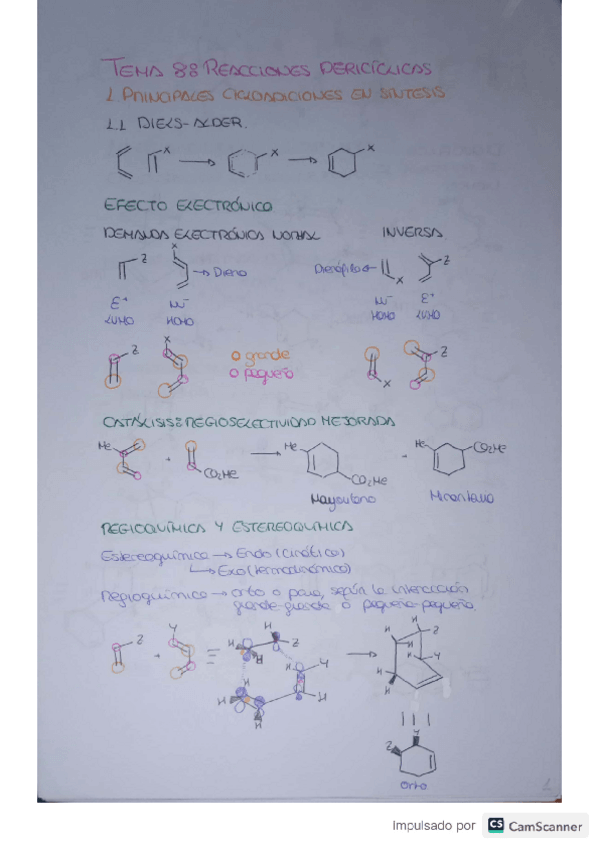 TEMA 8: REACCIONES PERICÍCLICAS
1. PRINCIPALES CICLOADICIONES EN SÍNTESIS
1.1 DIELS-ALDER.
X X X
EFECTO ELECTRÓNICO
DEMANDA ELECTRÓNICA NORMAL INVERSA
Z X → Dieno Dienófilo ← X Z
E+ Nu- Nu- E+
LUMO HOMO HOMO LUMO
Z X O grande X Z
O pequeño
CATÁLISIS: REGIOSELECTIVIDAD MEJORADA
Me + CO2Me → Me CO2Me + Me CO2Me
Mayoritario Minoritario
REGIOQUÍMICA Y ESTEREOQUÍMICA
Estereoquímica → Endo (cinético)
↳ Exo (termodinámico)
Regioquímica → orto o para, según la interacción
grande-grande o pequeño-pequeño.
Z + Y ≡ H H H Z H Y H H H → H Z H Y H H
Z Y
orto
1
Impulsado por CS CamScanner